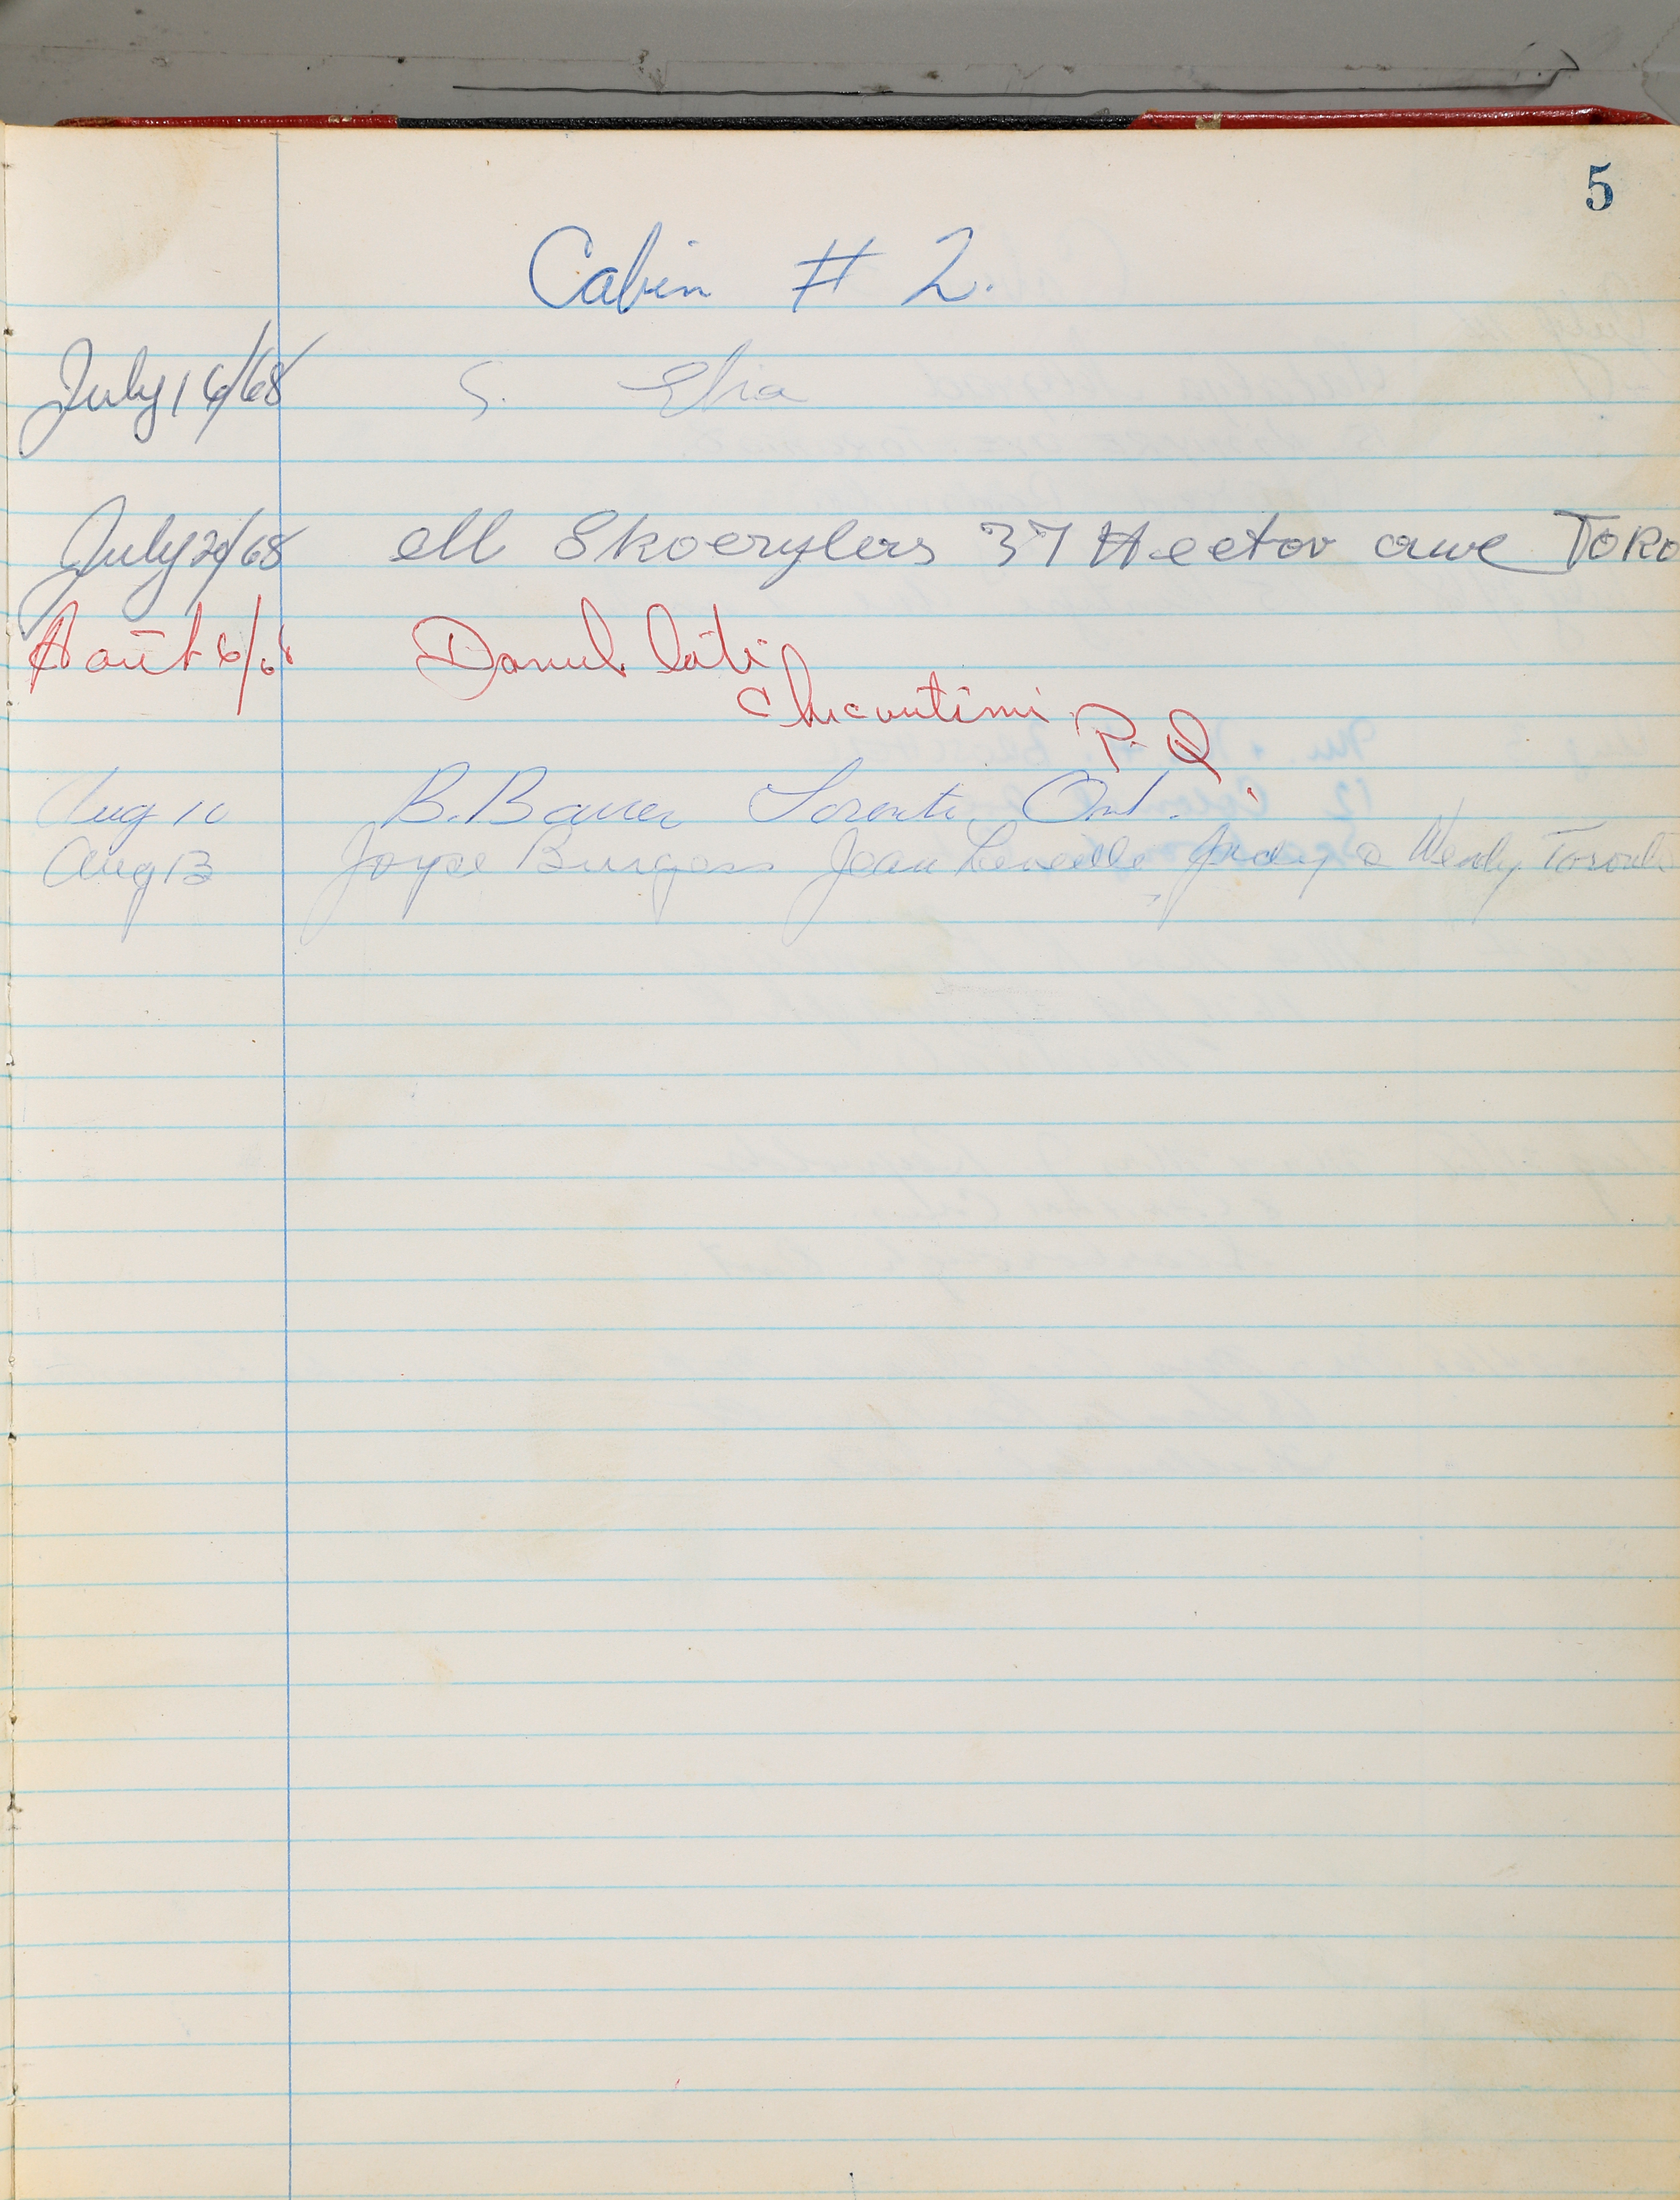 5
Cabin # 2.
July 16/68 S. Elia
July 29/68 37 Hector ave TORO
Août 6/68 Daniel
Chicoutimi P.Q
Aug 10 B. Toronto, Ont.
Aug 13 Joyce Burgess Jean Leveille, Judy & Wendy Toronto